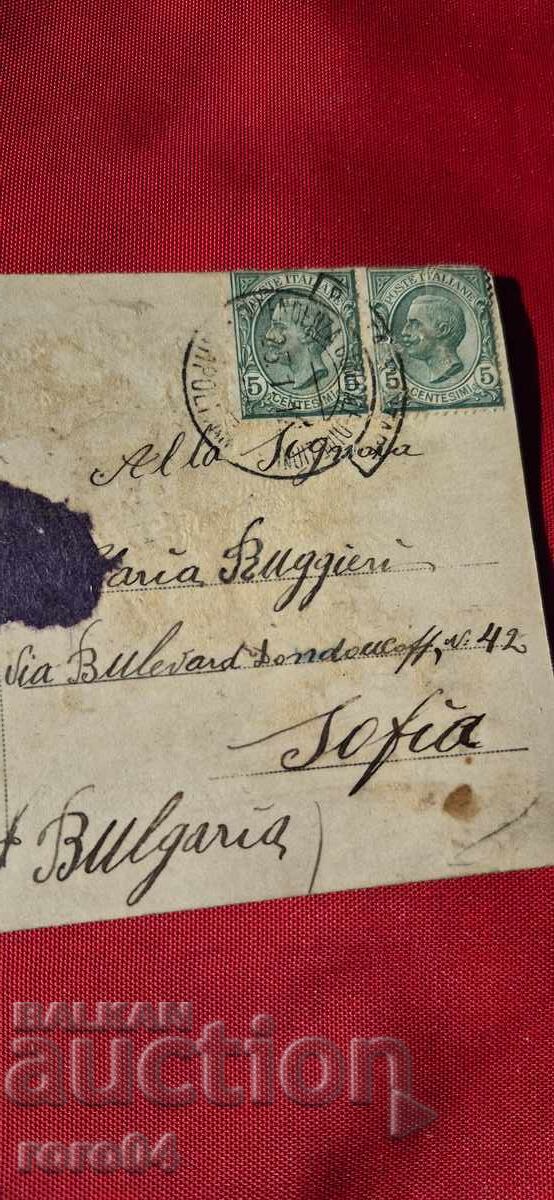 POSTE ITALIANE POSTE ITALIANE
5 CENTESIMI 5 5 CENTESIMI 5
Alla Signora
aria Ruggieri
Via Bulevard Dondoucoff, N. 42
Sofia
Bulgaria
BALKAN
auction
roro04